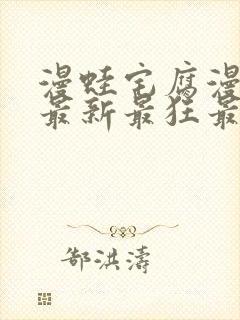 漫蛙宅腐漫
最新最狂最
郜洪涛